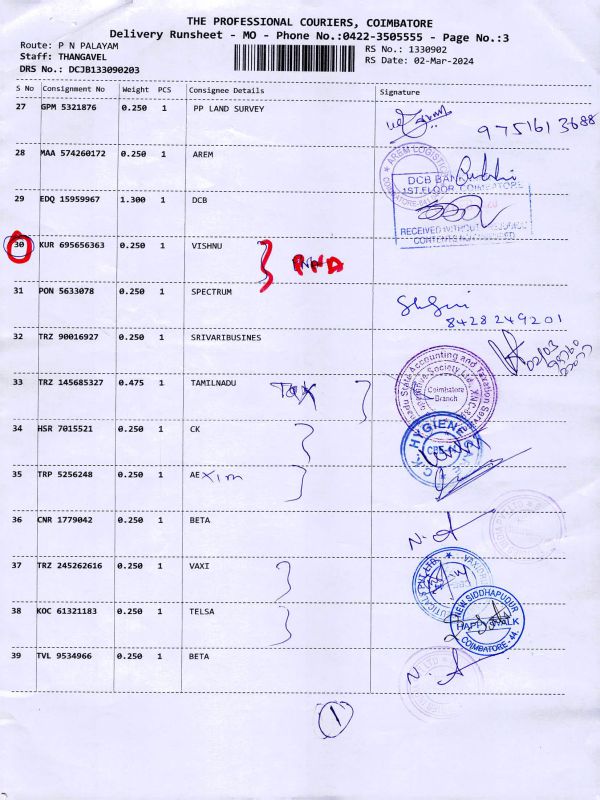 THE PROFESSIONAL COURIERS, COIMBATORE
Delivery Runsheet - MO - Phone No.:0422-3505555 - Page No.:3
Route: P N PALAYAM
RS No.: 1330902
Staff: THANGAVEL
RS Date: 02-Mar-2024
DRS No.: DCJB133090203
S No Consignment No Weight PCS Consignee Details Signature
27 GPM 5321876 0.250 1 PP LAND SURVEY
9751613688
28 MAA 574260172 0.250 1 AREM
AREM LOGISTICS
COIMBATORE-641
29 EDQ 15959967 1.300 1 DCB
DCB BANK
1ST FLOOR, COIMBATORE
RECEIVED WITHOUT PREJUDICE
CONTENTS NOT VERIFIED
30 KUR 695656363 0.250 1 VISHNU
31 PON 5633078 0.250 1 SPECTRUM
8428249201
32 TRZ 90016927 0.250 1 SRIVARIBUSINES
02/03
State Accounting and Taxation Serv
Society Ltd., XNC-
Coimbatore
Branch
33 TRZ 145685327 0.475 1 TAMILNADU Tax
34 HSR 7015521 0.250 1 CK
C.K. HYGIENE
CBE
35 TRP 5256248 0.250 1 AEXim
36 CNR 1779042 0.250 1 BETA
N.
37 TRZ 245262616 0.250 1 VAXI
38 KOC 61321183 0.250 1 TELSA
NEW SIDDHAPUDUR
HAPPY WALK
COIMBATORE - 44
39 TVL 9534966 0.250 1 BETA
N.
1